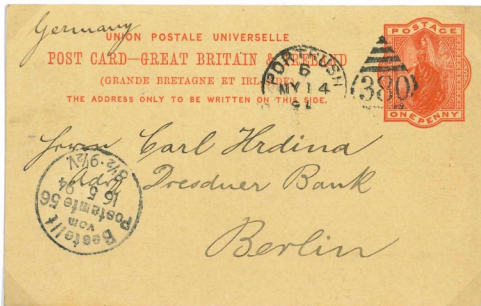 Germany
UNION POSTALE UNIVERSELLE
POST CARD–GREAT BRITAIN & IRELAND
(GRANDE BRETAGNE ET IRLANDE)
THE ADDRESS ONLY TO BE WRITTEN ON THIS SIDE.
POSTAGE
ONE PENNY
PORTRUSH
6
MY 14
380
Herrn Carl Hrdina
Adr Dresdner Bank
Berlin
Bestellt
vom
Postamte 56
16 5 94
8½-9½V